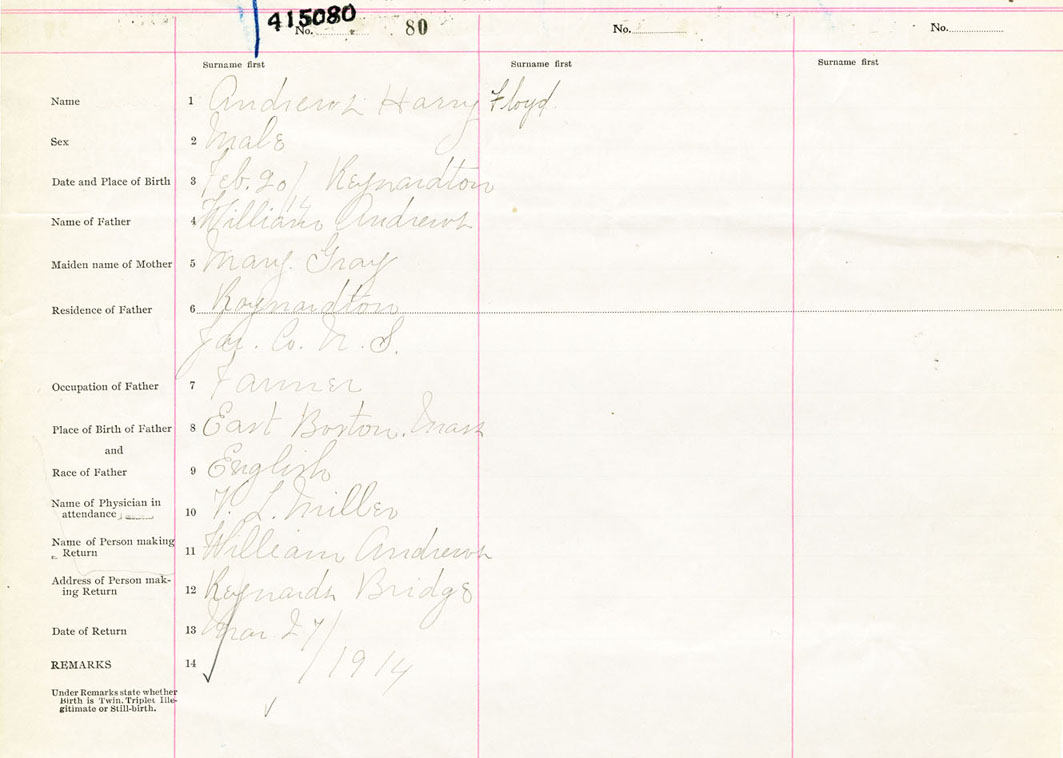 415080
No. 80 No. No.
Surname first Surname first Surname first
Name 1 Andrews Harry Floyd
Sex 2 Male
Date and Place of Birth 3 Feb. 20/14 Reynardton
Name of Father 4 William Andrews
Maiden name of Mother 5 Mary Gray
Residence of Father 6 Raynardton
Yar. Co. N. S.
Occupation of Father 7 Farmer
Place of Birth of Father 8 East Boston, Mass
and
Race of Father 9 English
Name of Physician in
attendance 10 V. L. Miller
Name of Person making
Return 11 William Andrews
Address of Person mak-
ing Return 12 Reynards Bridge
Date of Return 13 Mar. 27/
REMARKS 14 /1914
Under Remarks state whether
Birth is Twin, Triplet Ille-
gitimate or Still-birth.